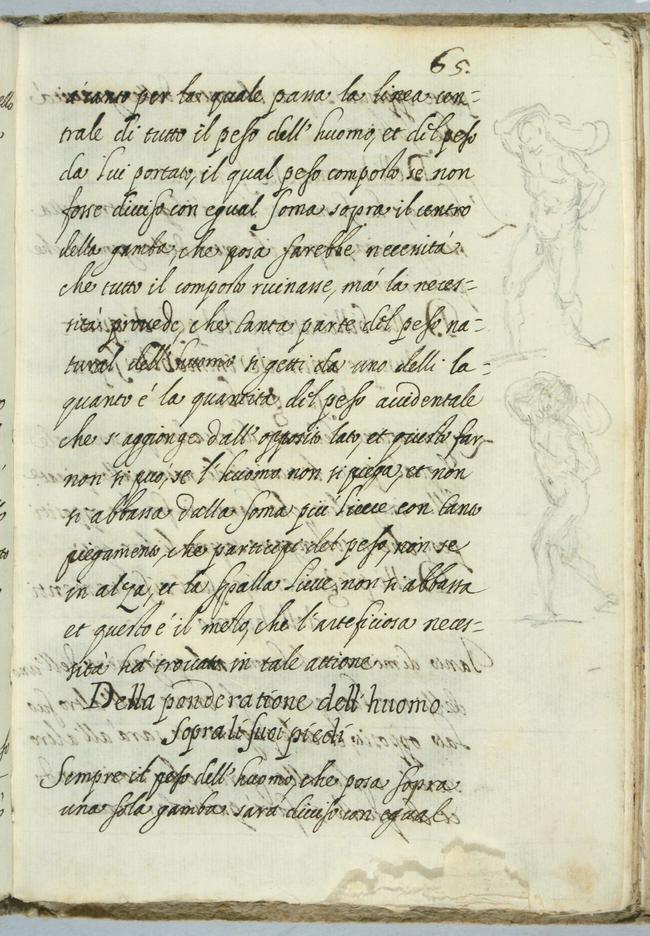 65.
per la quale passa la linea con=
trale di tutto il peso dell' huomo, et del peso
da lui portato, il qual peso composto se non
fosse diviso con egual soma sopra il centro
della gamba che posa sarebbe necessità
che tutto il composto ruinasse, má la neces=
sitá provede, che tanta parte del peso na=
tural dell' huomo si getti da uno delli la=
quanto é la quantità del peso accidentale
che s'aggionge dall' opposito lato, et questo far
non si puó, se l' huomo non si piega, et non
si abbassa dalla soma piu lieve con tanto
piegamento, che partecipi del peso, non se
in alza, et la spalla lieve non si abbassa
et questo é il che l'arteficiosa neces=
sitá há trovato in tale attione
Della ponderatione dell' huomo
sopra li suoi piedi
Sempre il peso dell' huomo, che posa sopra
una sola gamba sará diviso con egual